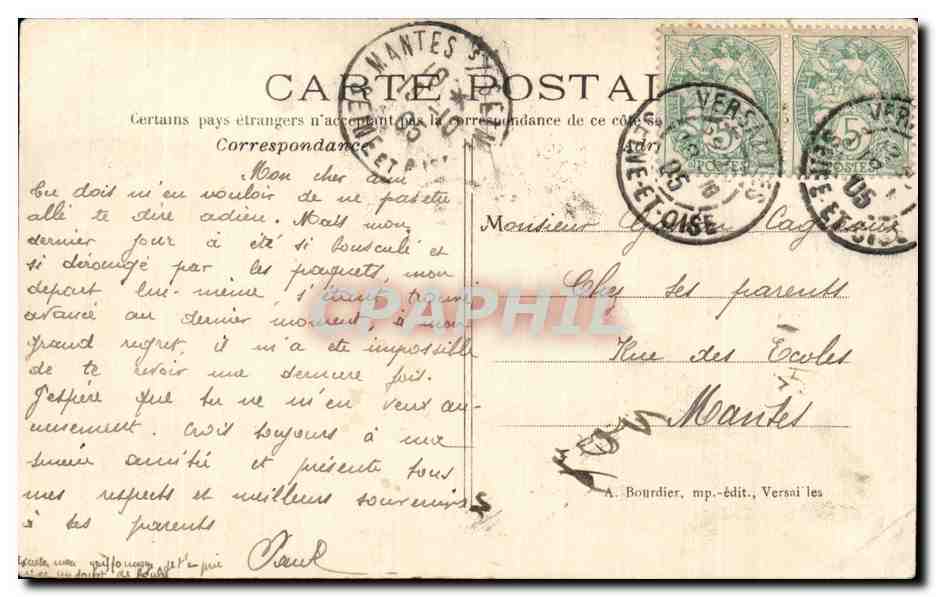 CARTE POSTAL
Certains pays étrangers n'acceptent pas la correspondance de ce côté se
Correspondance
Adr
MANTES S/SEINE
SEINE ET
VERSAILLES
SEINE-ET-OISE
05
VER
SEINE-ET-OISE
05
5
POSTES
5
POSTES
Mon cher ami
Tu dois m'en vouloir de ne pas être
allé te dire adieu. Mais mon
dernier jour a été si bousculé et
si dérangé par les paquets, mon
depart lui-même s'étant trouvé
avancé au dernier moment, à mon
grand regret, il m'a été impossible
de te voir une dernière fois.
J'espère que tu ne m'en veux au-
cunement. Crois toujours à ma
sincère amitié et présente tous
mes respects et meilleurs souvenirs
à tes parents
Paul
mon griffonnage je t'en prie
Monsieur
Chez ses parents
Rue des Ecoles
Mantes
A. Bourdier, mp.-édit., Versai les
CPAPHIL